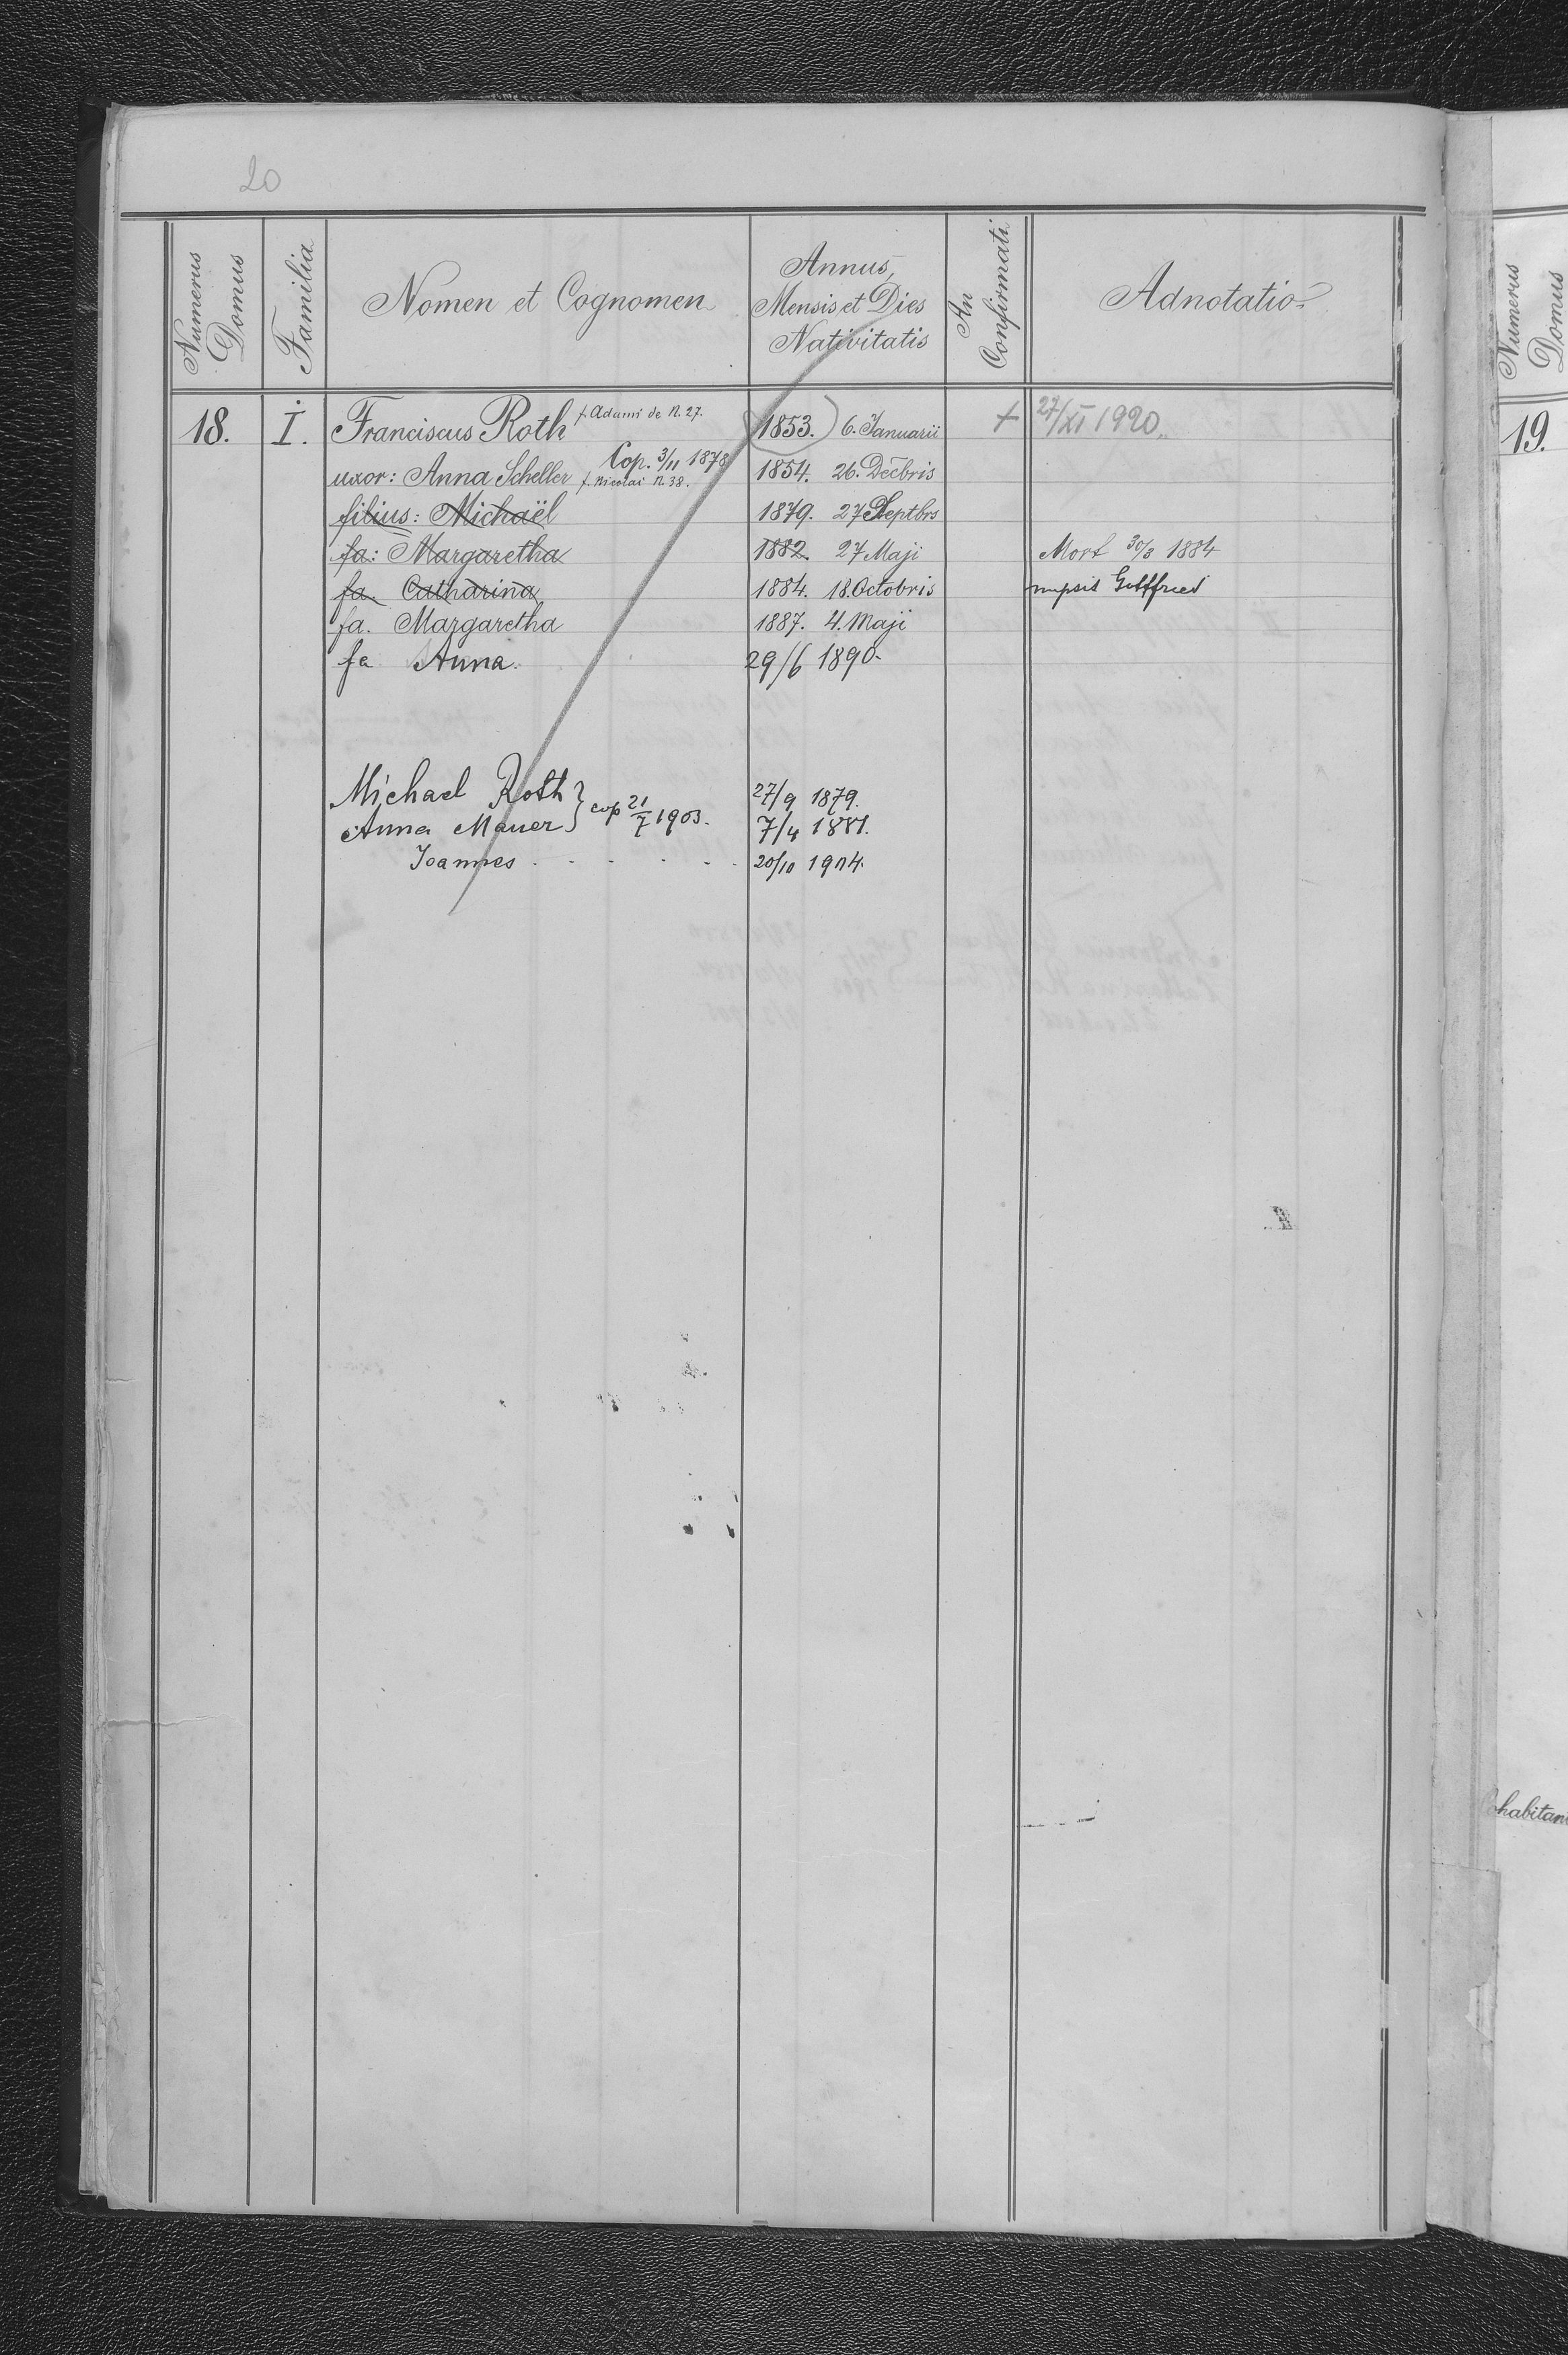 20
Numerus Domus | Familia | Nomen et Cognomen | Annus, Mensis et Dies Nativitatis | An Confirmati | Adnotatio
18. | I. | Franciscus Roth f. Adami de N. 27. | 1853. 6. Januarii | + | 27/XI 1920.
Cop. 3/11 1878
uxor: Anna Scheller f. Nicolai N. 38. | 1854. 26. Decbris
filius: Michaël | 1879. 27 Septbrs
fa: Margaretha | 1882. 27 Maji | Mort 30/8 1884
fa. Catharina | 1884. 18. Octobris | nupsit Gottfried
fa. Margaretha | 1887. 4. Maji
fa Anna. | 29/6 1890.
Michael Roth } cop 21/7 1903. | 27/9 1879.
Anna Mauer | 7/4 1881.
Joannes | 20/10 1904.
Numerus Domus
19.
Cohabitan